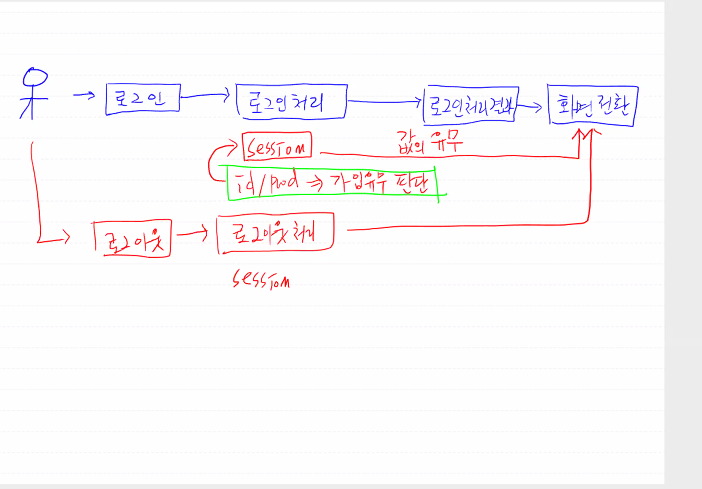 로그인 로그인처리 로그인처리결과 화면전환
session 값의 유무
id/pwd ⇒ 가입유무 판단
로그아웃 로그아웃처리
session